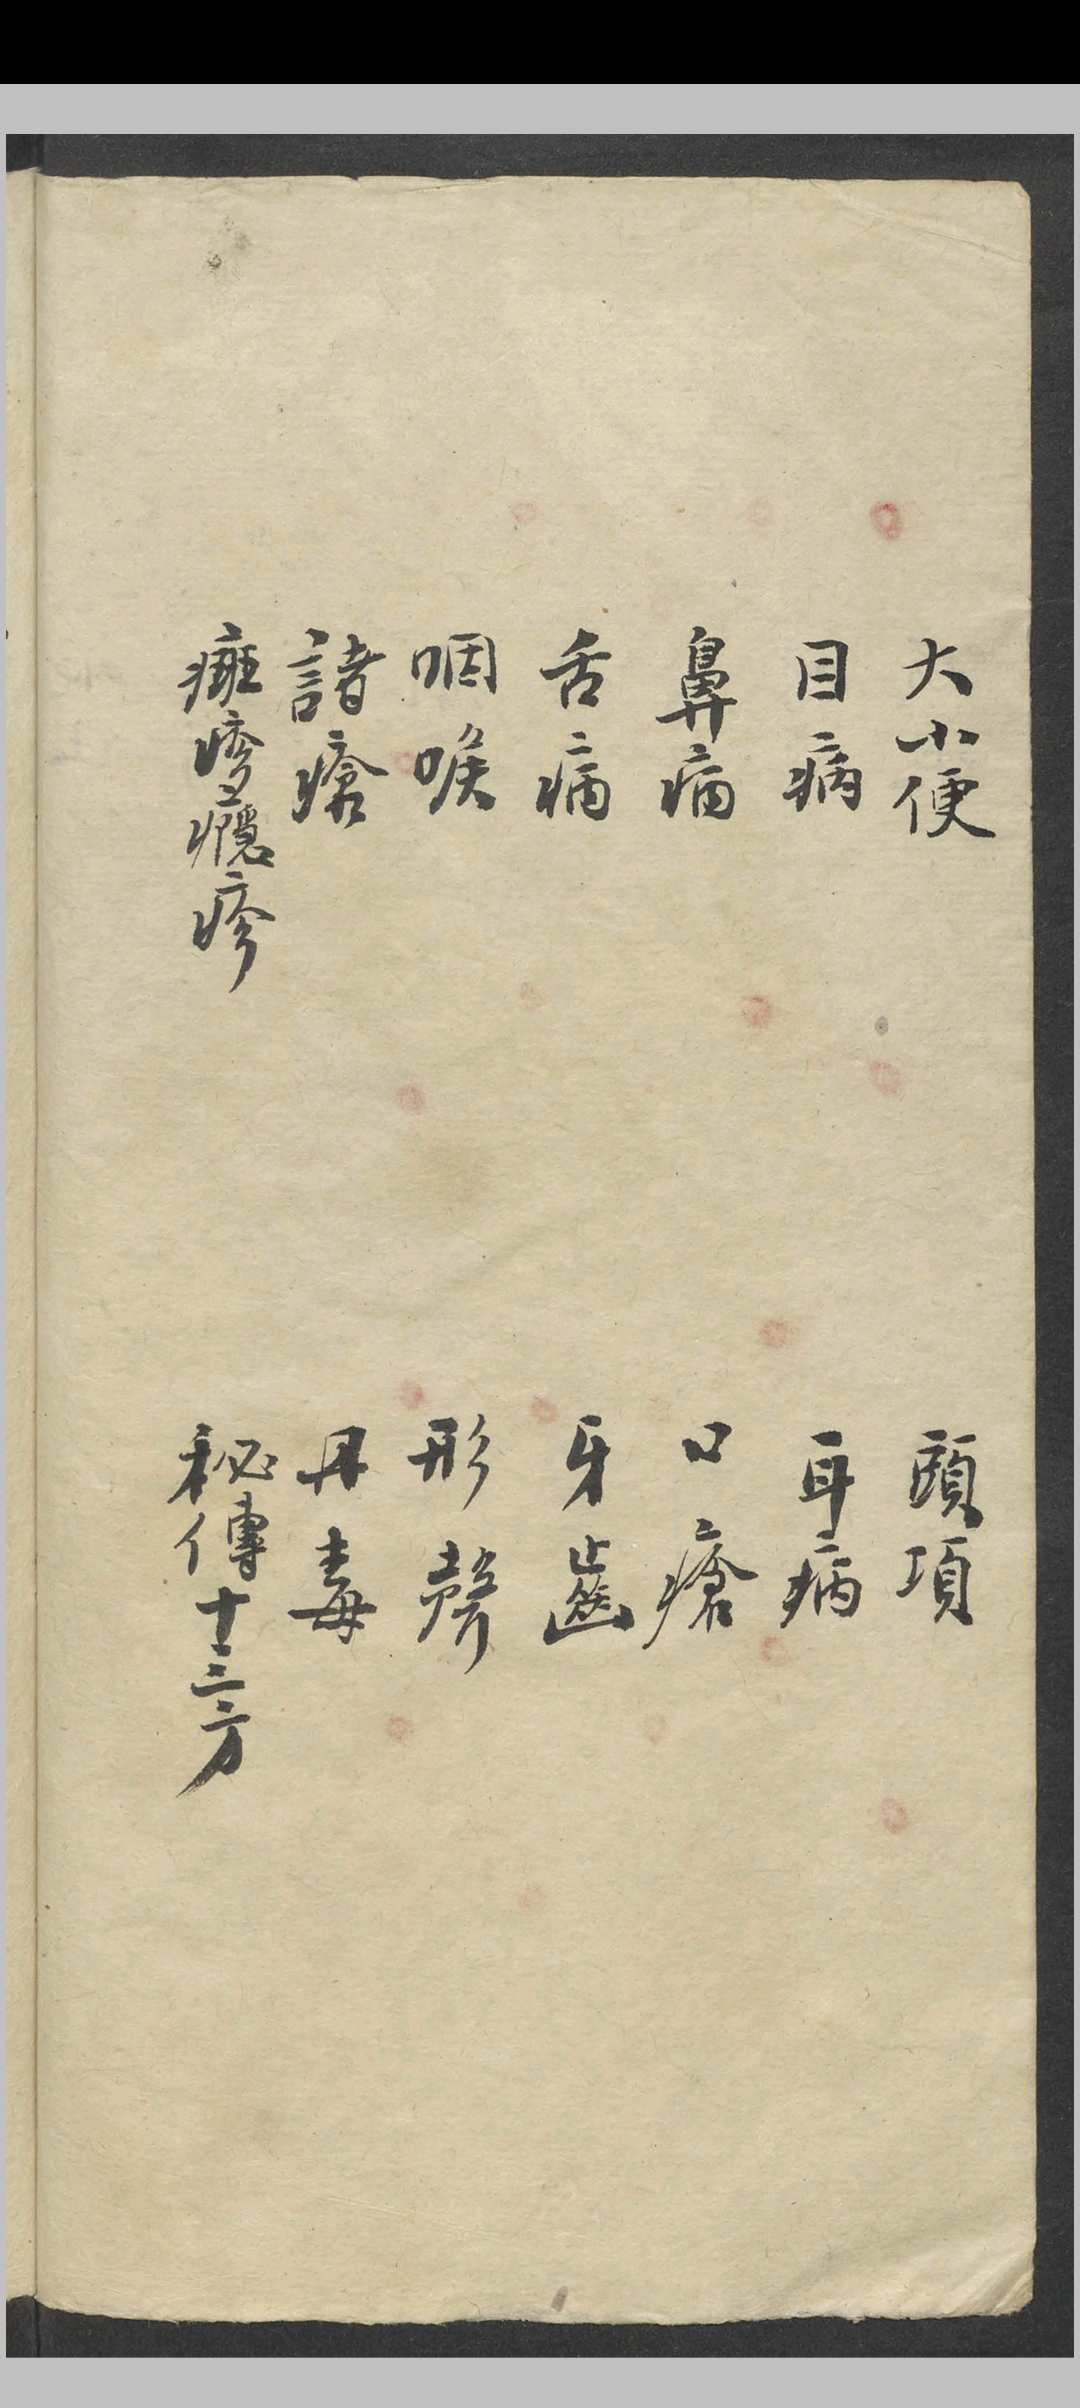 大小便
頭項
目病
耳病
鼻病
口瘡
舌病
牙齒
咽喉
形聲
諸瘡
丹毒
疹癮疹
秘傳十三方